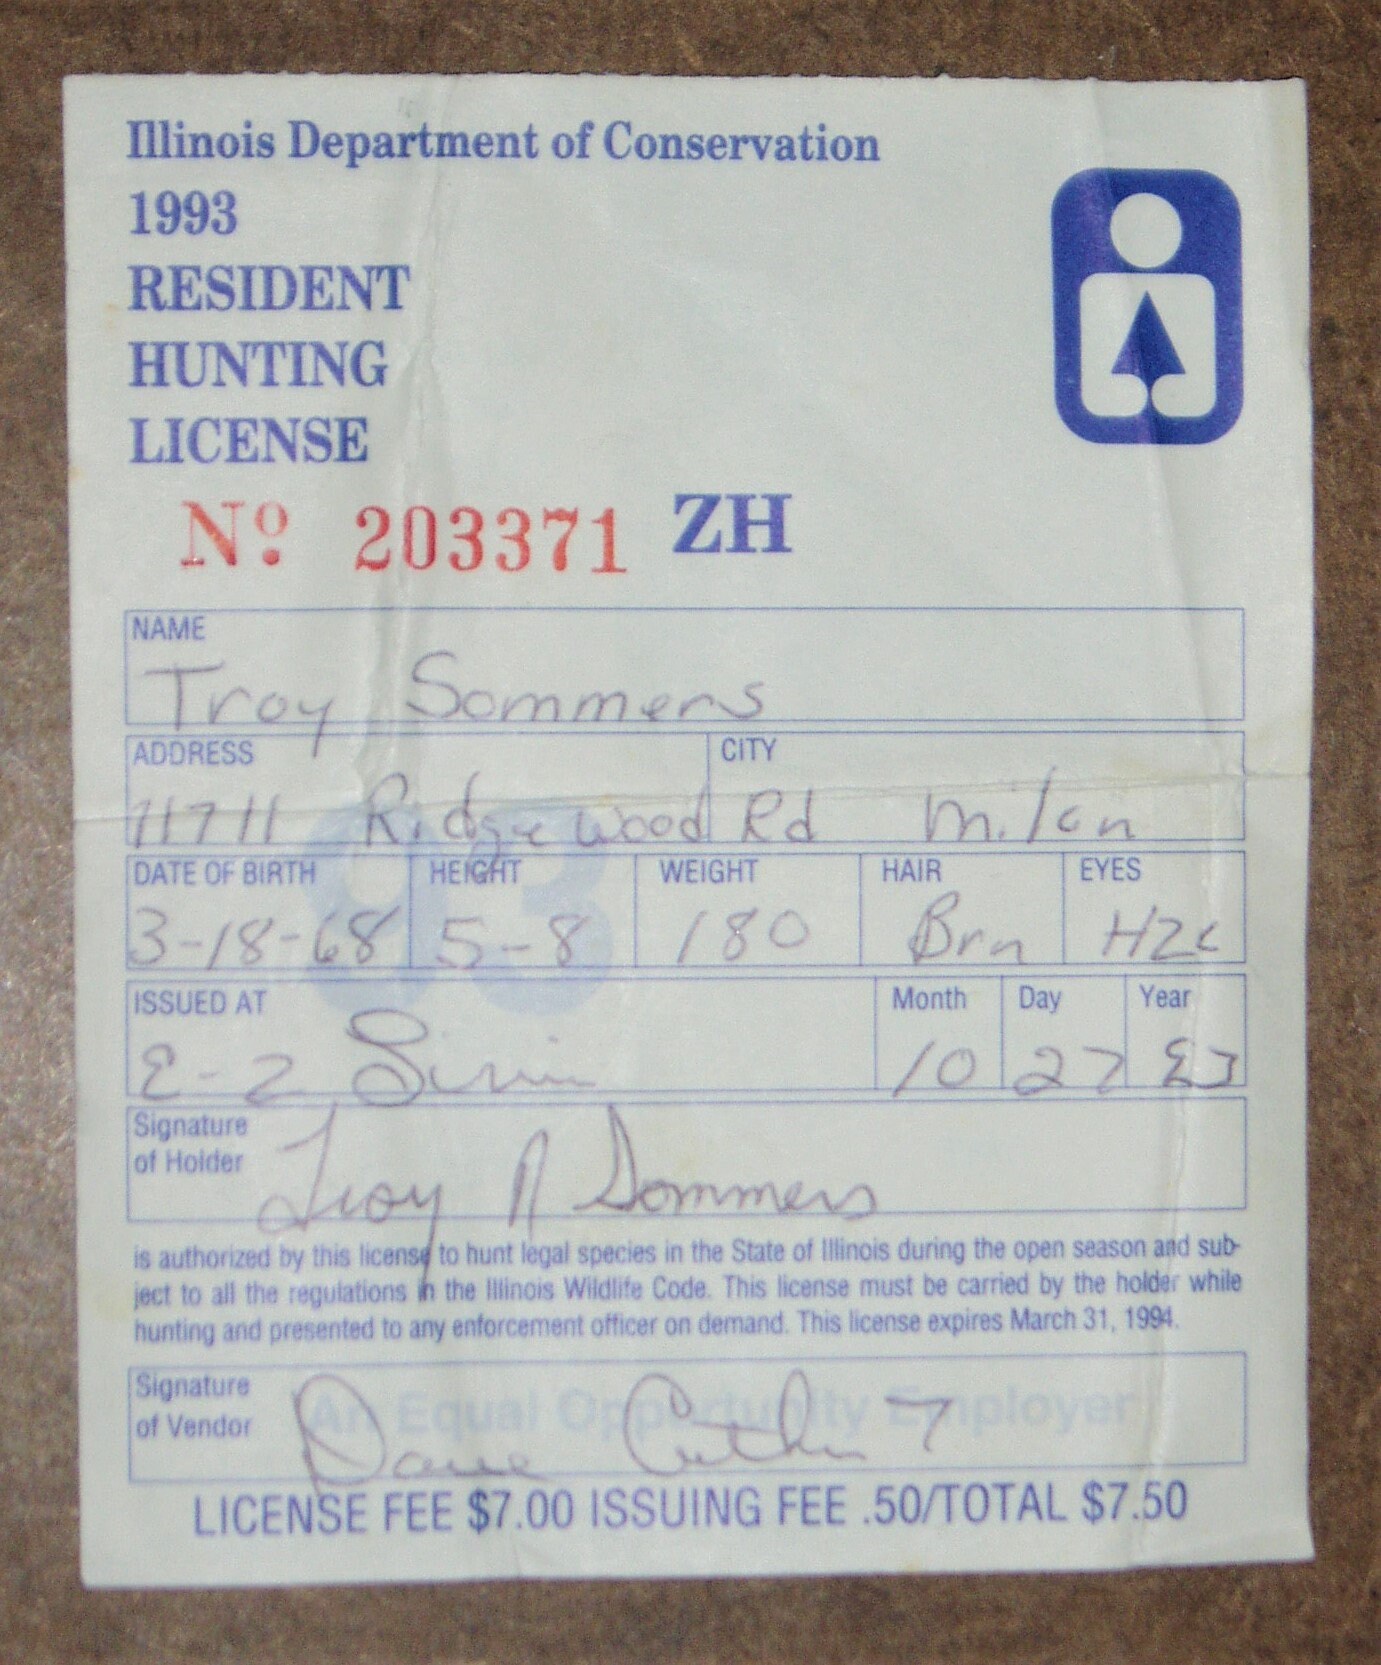 Illinois Department of Conservation
1993
RESIDENT
HUNTING
LICENSE
Nº 203371 ZH
NAME
Troy Sommers
ADDRESS CITY
11711 Ridgewood Rd Milan
DATE OF BIRTH HEIGHT WEIGHT HAIR EYES
3-18-68 5-8 180 Brn HZL
ISSUED AT Month Day Year
E-Z 10 27 93
Signature
of Holder
Troy A Sommers
is authorized by this license to hunt legal species in the State of Illinois during the open season and sub-
ject to all the regulations in the Illinois Wildlife Code. This license must be carried by the holder while
hunting and presented to any enforcement officer on demand. This license expires March 31, 1994.
Signature
of Vendor
An Equal Opportunity Employer
Dave
LICENSE FEE $7.00 ISSUING FEE .50/TOTAL $7.50